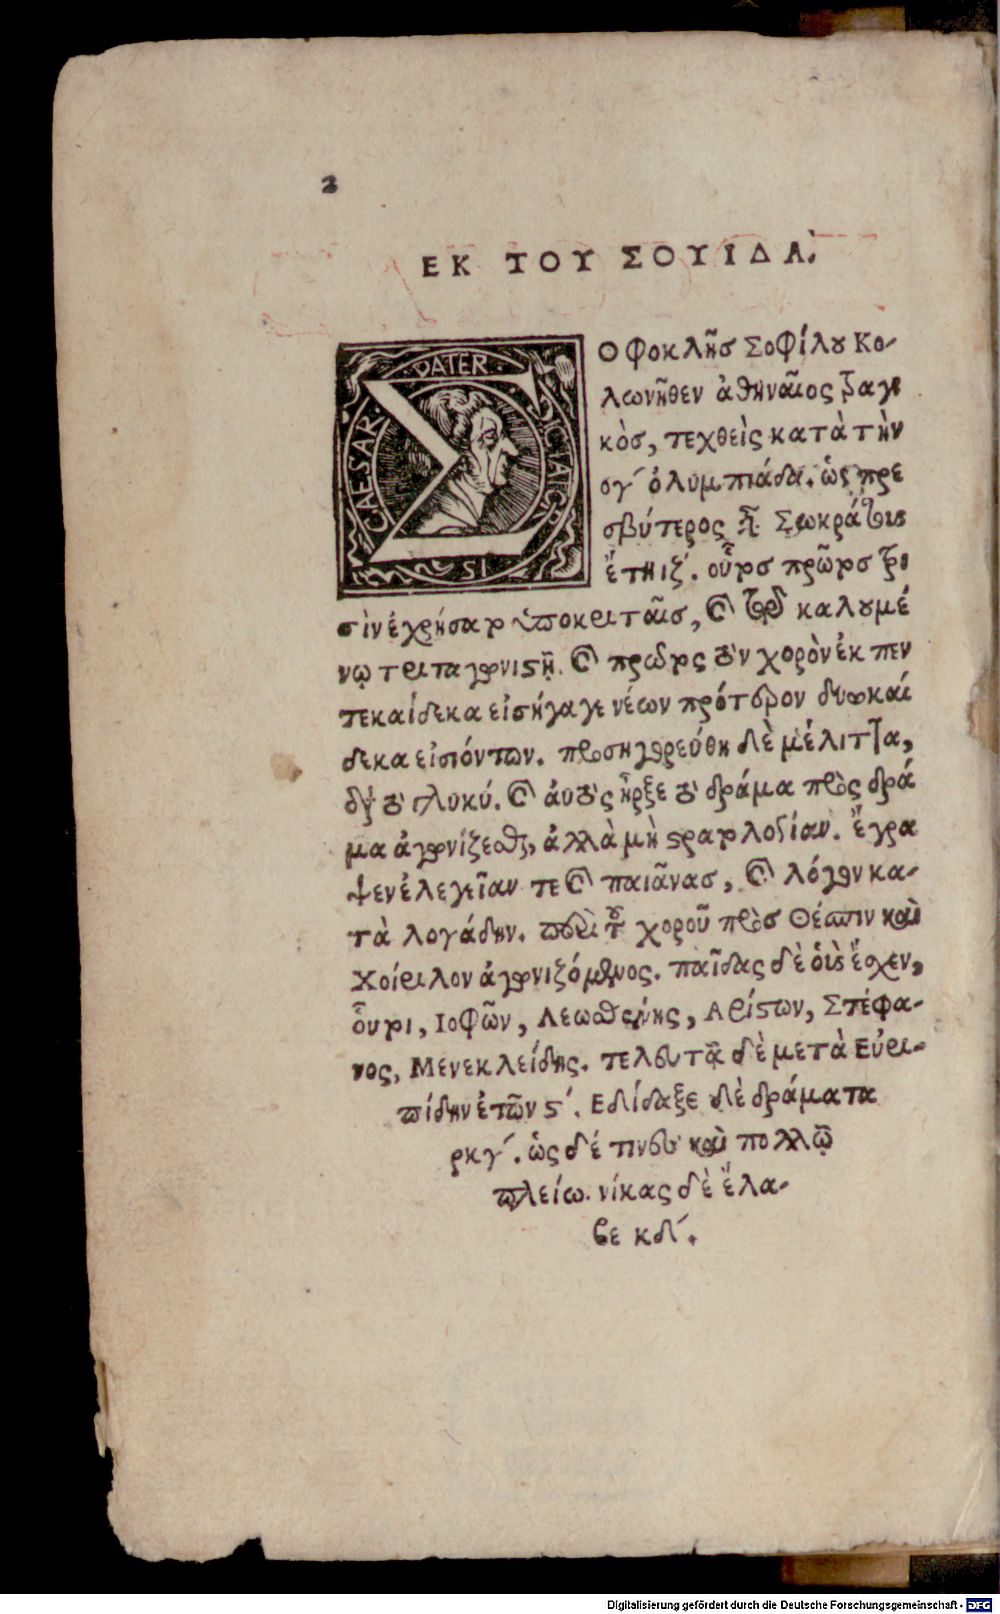 2
ΕΚ ΤΟΥ ΣΟΥΙΔΑ.
PATER
CAESAR
SI
Οφοκλῆσ Σοφίλου Κο-
λωνῆθεν ἀθηναῖος τραγι
κὸσ, τεχθεὶς κατὰ τὴν
ογ´ ὀλυμπιάδα. ὡς πρε
σβύτερος εἶ. Σωκράτους
ἔτη ιζ´. οὗτοσ πρῶτοσ τρι
σὶν ἐχρήσατο ὑποκριταῖσ, καὶ τῷ καλουμέ
νῳ τριταγωνιστῇ. καὶ πρῶτος τὸν χορὸν ἐκ πεν
τεκαίδεκα εἰσήγαγε νέων πρότερον δυοκαί
δεκα εἰσιόντων. προσηγορεύθη δὲ μέλιττα,
διὰ τὸ γλυκύ. καὶ αὐτὸς ἦρξε τὸ δρᾶμα πρὸς δρά
μα ἀγωνίζεσθαι, ἀλλὰ μὴ στρατολογίαν. ἔγρα
ψεν ἐλεγεῖαν τε καὶ παιᾶνασ, καὶ λόγον κα-
τὰ λογάδην. περὶ τοῦ χοροῦ πρὸσ Θέσπιν καὶ
Χοίριλον ἀγωνιζόμενος. παῖδας δὲ οὓς ἔσχεν,
οὗτοι, Ιοφῶν, Λεωσθένης, Αρίστων, Στέφα-
νος, Μενεκλείδης. τελευτᾷ δὲ μετὰ Εὐρι-
πίδην ἐτῶν ϛ´. Εδίδαξε δὲ δράματα
ρκγ´. ὡς δέ τινες καὶ πολλῷ
πλείω. νίκας δὲ ἔλα-
βε κδ´.
Digitalisierung gefördert durch die Deutsche Forschungsgemeinschaft - DFG